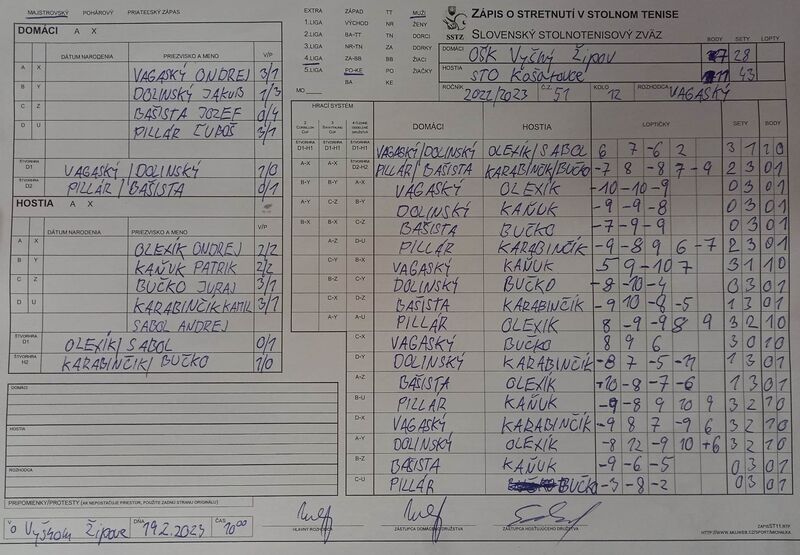 MAJSTROVSKÝ POHÁROVÝ PRIATEĽSKÝ ZÁPAS
DOMÁCI A X
DÁTUM NARODENIA PRIEZVISKO A MENO V/P
A X VAGASKÝ ONDREJ 3/1
B Y DOLINSKÝ JAKUB 1/3
C Z BAŠISTA JOZEF 0/4
D U PILLÁR ĽUBOŠ 3/1
ŠTVORHRA D1 VAGASKÝ/DOLINSKÝ 1/0
ŠTVORHRA D2 PILLÁR/BAŠISTA 0/1
HOSTIA A X
DÁTUM NARODENIA PRIEZVISKO A MENO V/P
A X OLEXÍK ONDREJ 2/2
B Y KAŇUK PATRIK 2/2
C Z BUČKO JURAJ 3/1
D U KARABINČÍK KAMIL 3/1
SABOL ANDREJ
ŠTVORHRA D1 OLEXÍK/SABOL 0/1
ŠTVORHRA H2 KARABINČÍK/BUČKO 1/0
DOMÁCI
HOSTIA
ROZHODCA
PRIPOMIENKY/PROTESTY (AK NEPOSTAČUJE PRIESTOR, POUŽITE ZADNÚ STRANU ORIGINÁLU)
V o Vyšnom Žipove DŇA 19.2.2023 ČAS 10:00
EXTRA ZÁPAD TT MUŽI
1.LIGA VÝCHOD NR ŽENY
2.LIGA BA-TT TN DORCI
3.LIGA NR-TN ZA DORKY
4.LIGA ZA-BB BB ŽIACI
5.LIGA PO-KE PO ŽIAČKY
MO BA KE
SSTZ
ZÁPIS O STRETNUTÍ V STOLNOM TENISE
SLOVENSKÝ STOLNOTENISOVÝ ZVÄZ
BODY SETY LOPTY
DOMÁCI OŠK Vyšný Žipov 7 28
HOSTIA STO Košarovce 11 43
ROČNÍK 2022/2023 Č.Z. 51 KOLO 12 ROZHODCA VAGASKÝ
HRACÍ SYSTÉM
DOMÁCI HOSTIA LOPTIČKY SETY BODY
D1-H1 D1-H1 VAGASKÝ/DOLINSKÝ OLEXÍK/SABOL 6 7 -6 2 3 1 1 0
A-X D2-H2 PILLÁR/BAŠISTA KARABINČÍK/BUČKO -7 8 -8 7 -9 2 3 0 1
B-Y B-Y A-X VAGASKÝ OLEXÍK -10 -10 -9 0 3 0 1
A-Y C-Z B-Y DOLINSKÝ KAŇUK -9 -9 -8 0 3 0 1
B-X B-X C-Z BAŠISTA BUČKO -7 -9 -9 0 3 0 1
A-Z D-U PILLÁR KARABINČÍK -9 -8 9 6 -7 2 3 0 1
C-Y B-X VAGASKÝ KAŇUK 5 9 -10 7 3 1 1 0
B-Z C-Y DOLINSKÝ BUČKO -8 -10 -4 0 3 0 1
C-X D-Z BAŠISTA KARABINČÍK -9 10 -8 -5 1 3 0 1
A-Y A-U PILLÁR OLEXÍK 8 -9 -9 8 9 3 2 1 0
C-X VAGASKÝ BUČKO 8 9 6 3 0 1 0
D-Y DOLINSKÝ KARABINČÍK -8 7 -5 -11 1 3 0 1
A-Z BAŠISTA OLEXÍK 10 -8 -7 -6 1 3 0 1
B-U PILLÁR KAŇUK -9 -8 9 10 9 3 2 1 0
D-X VAGASKÝ KARABINČÍK -9 8 7 -9 6 3 2 1 0
A-Y DOLINSKÝ OLEXÍK -8 12 -9 10 +6 3 2 1 0
B-Z BAŠISTA KAŇUK -9 -6 -5 0 3 0 1
C-U PILLÁR BUČKO -3 -8 -2 0 3 0 1
HLAVNÝ ROZHODCA ZÁSTUPCA DOMÁCEHO DRUŽSTVA ZÁSTUPCA HOSŤUJÚCEHO DRUŽSTVA
ZAPISST11.RTF
HTTP://WWW.MUJWEB.CZ/SPORT/MICHALKA